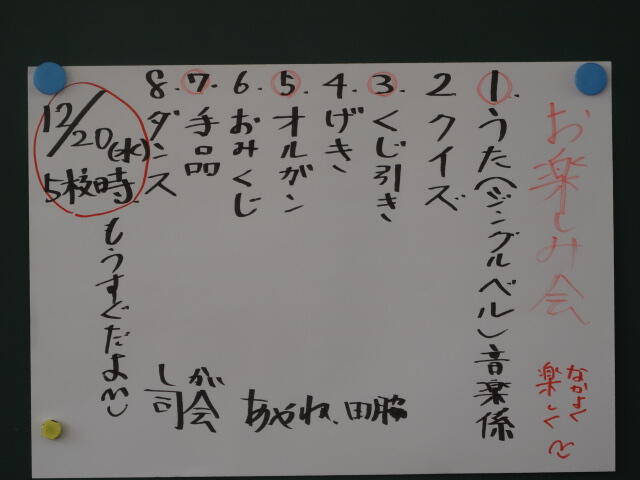 お楽しみ会
なかよく
楽しく
1. うた(ジングルベル)音楽係
2 クイズ
3. くじ引き
4. げき
5. オルガン
6. おみくじ
7. 手品
8. ダンス
しかい
司会
あやね、田脇
12/20(水)
5校時
もうすぐだよ